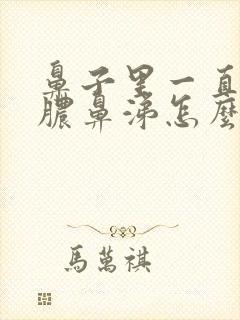 鼻子里一直
膿鼻涕怎麼
馬萬祺